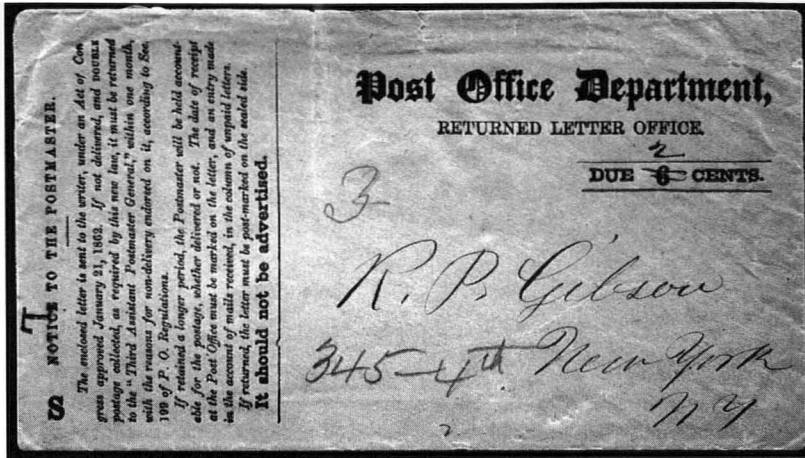 NOTICE TO THE POSTMASTER.
The enclosed letter is sent to the writer, under an Act of Con
gress approved January 21, 1862. If not delivered, and DOUBLE
postage collected, as required by this new law, it must be returned
to the "Third Assistant Postmaster General," within one month,
with the reasons for non-delivery endorsed on it, according to Sec.
199 of P. O. Regulations.
If retained a longer period, the Postmaster will be held account-
able for the postage, whether delivered or not. The date of receipt
at the Post Office must be marked on the letter, and an entry made
in the account of mails received, in the column of unpaid letters.
If returned, the letter must be post-marked on the sealed side.
It should not be advertised.
S T
Post Office Department,
RETURNED LETTER OFFICE,
2
DUE 6 CENTS.
3
R. P. Gibson
345-4th New York
NY